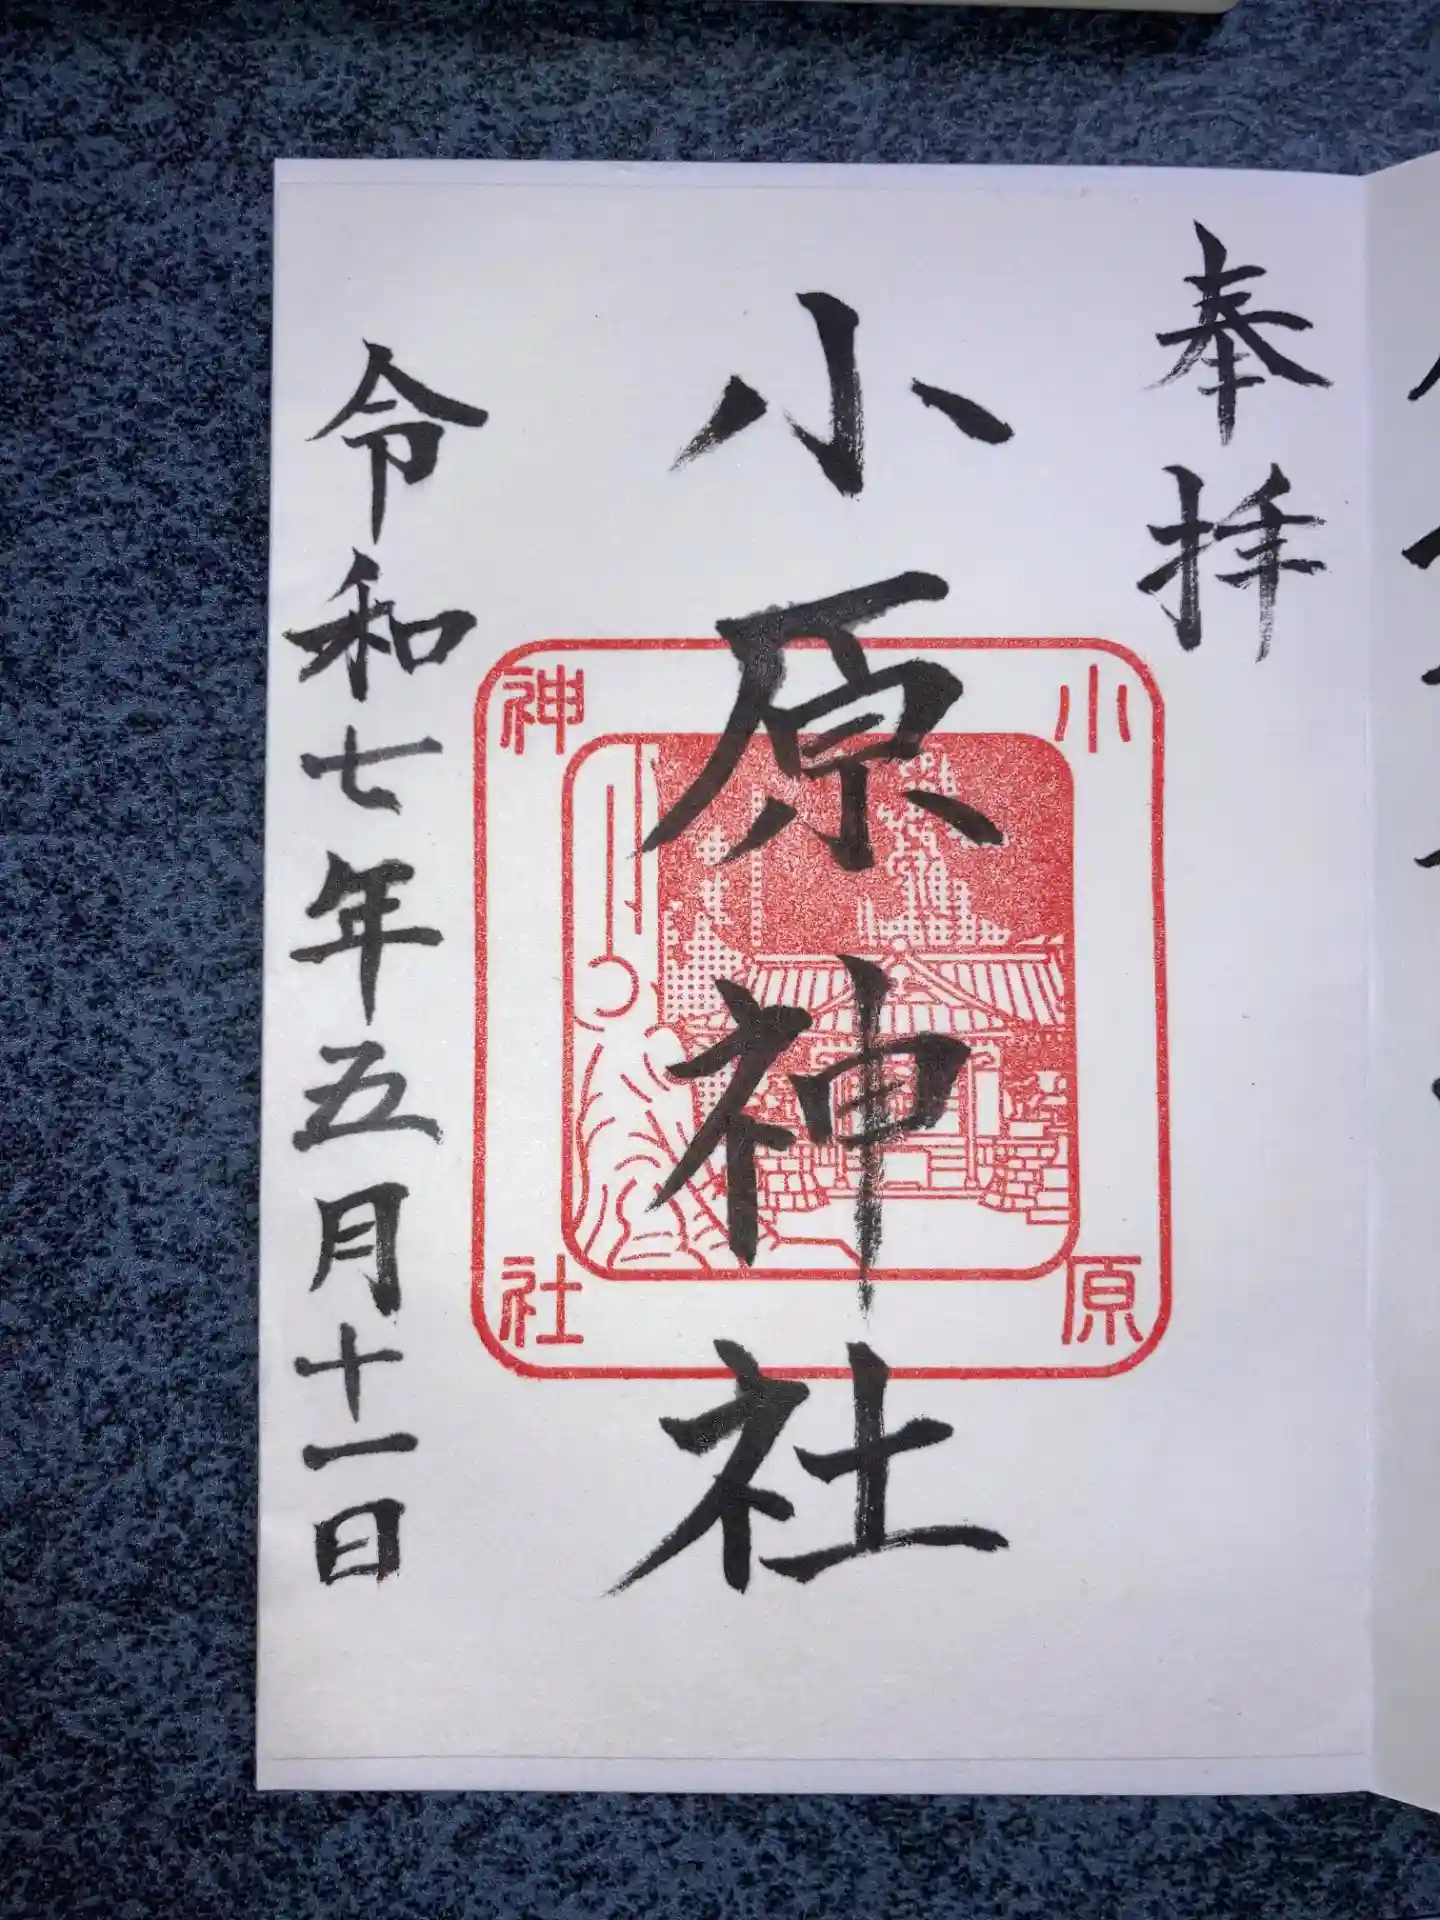 奉拝
小原神社
小原神社
令和七年五月十一日